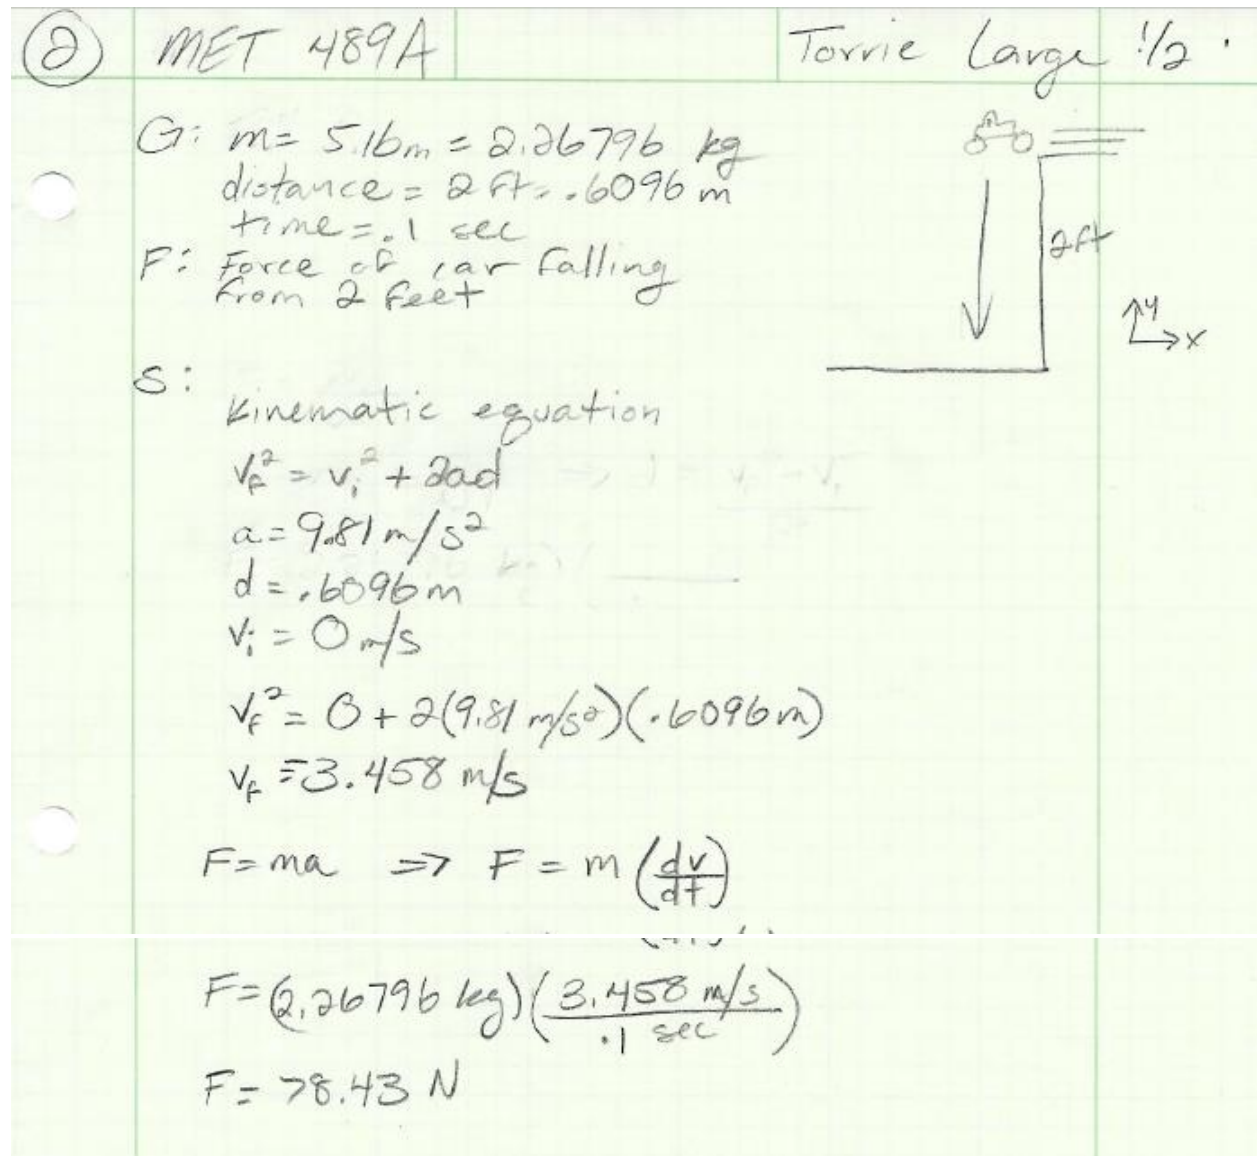 2 MET 489A Torrie Large 1/2
G: m= 5 lbm = 2.26796 kg
distance = 2 ft = .6096 m
time = .1 sec
F: Force of car falling
from 2 feet
2ft
y
x
S:
Kinematic equation
v_f^2 = v_i^2 + 2ad
a = 9.81 m/s^2
d = .6096 m
v_i = 0 m/s
v_f^2 = 0 + 2(9.81 m/s^2)(.6096 m)
v_f = 3.458 m/s
F = ma => F = m (dv/dt)
F = (2.26796 kg)(3.458 m/s / .1 sec)
F = 78.43 N